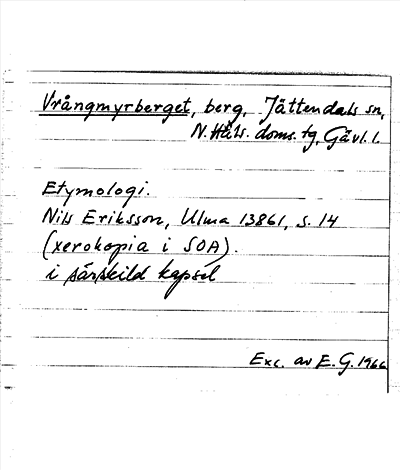 Vrångmyrberget, berg, Jättendals sn,
N. Häls. doms. tg, Gävl. l.
Etymologi.
Nils Eriksson, Ulma 13861, s. 14
(xerokopia i SOA).
i särskild kapsel
Exc. av E. G. 1966